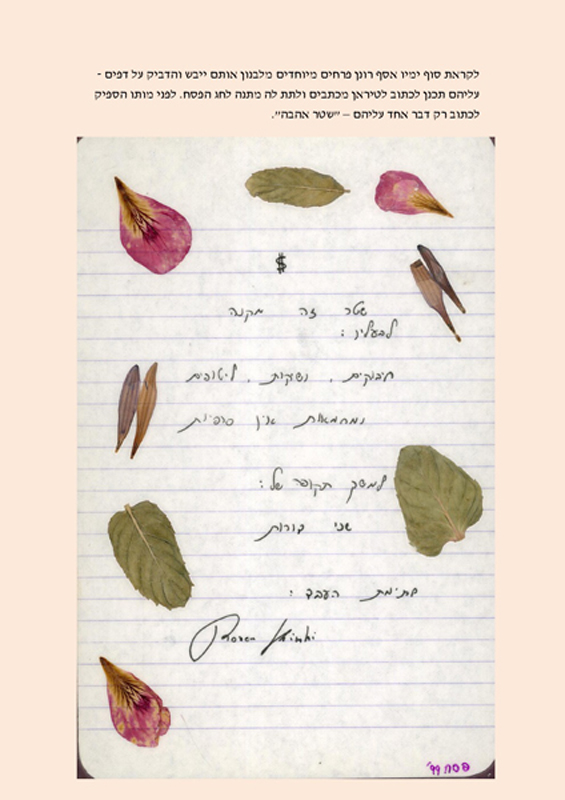 לקראת סוף ימיו אסף רונן פרחים מיוחדים מלבנון אותם ייבש והדביק על דפים -
עליהם תכנן לכתוב לטיראן מכתבים ולתת לה מתנה לחג הפסח. לפני מותו הספיק
לכתוב רק דבר אחד עליהם – "שטר אהבה".
$
שטר זה מקנה
לבעליו :
חיבוקים , נשיקות , ליטופים
ומחמאות אין סופיות
למשך תקופה של :
שני דורות
חתימת העבד :
Ronen
פסח 99'